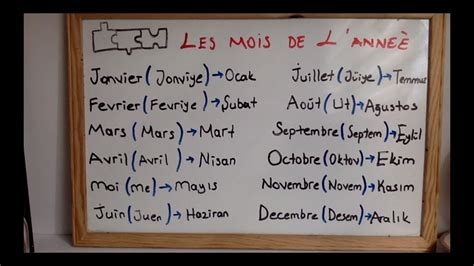 Les mois de L'anneè
Janvier (Janviye) → Ocak
Fevrier (Fevriye) → Şubat
Mars (Mars) → Mart
Avril (Avril) → Nisan
Moi (me) → Mayıs
Juin (Juen) → Haziran
Juillet (Jüiye) → Temmuz
Août (Ut) → Ağustos
Septembre (Septem) → Eylül
Octobre (Oktov) → Ekim
Novembre (Novem) → Kasım
Decembre (Desem) → Aralık